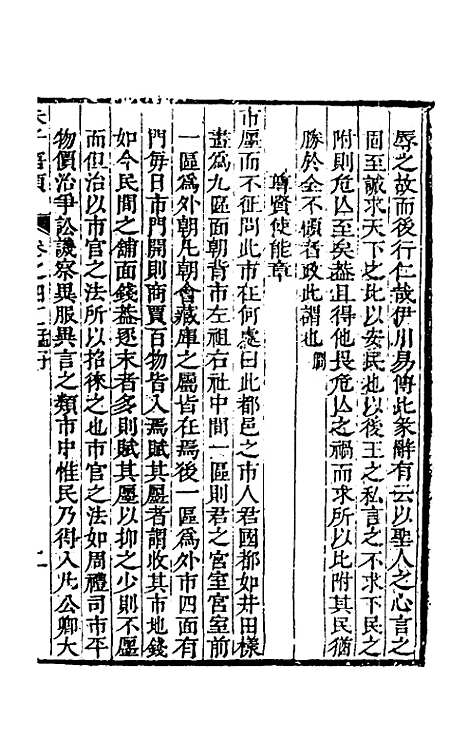 辱之故而後行仁哉伊川易傳比彖辭有云以聖人之心言之
固至誠求天下之比以安民也以後王之私言之不求下民之
附則危亾至矣蓋且得他畏危亾之禍而求所以比附其民猶
勝於全不顧者政此謂也 僩
尊賢使能章
市廛而不征問此市在何處曰此都邑之市人君國都如井田樣
畫爲九區面朝背市左祖右社中間一區則君之宮室宮室前
一區爲外朝凡朝會藏庫之屬皆在焉後一區爲外市四面有
門每日市門開則商賈百物皆入焉賦其廛者謂收其市地錢
如今民間之舖面錢蓋逐末者多則賦其廛以抑之少則不廛
而但治以市官之法所以招徠之也市官之法如周禮司市平
物價治爭訟譏察異服異言之類市中惟民乃得入凡公卿大
朱子語類 卷之四